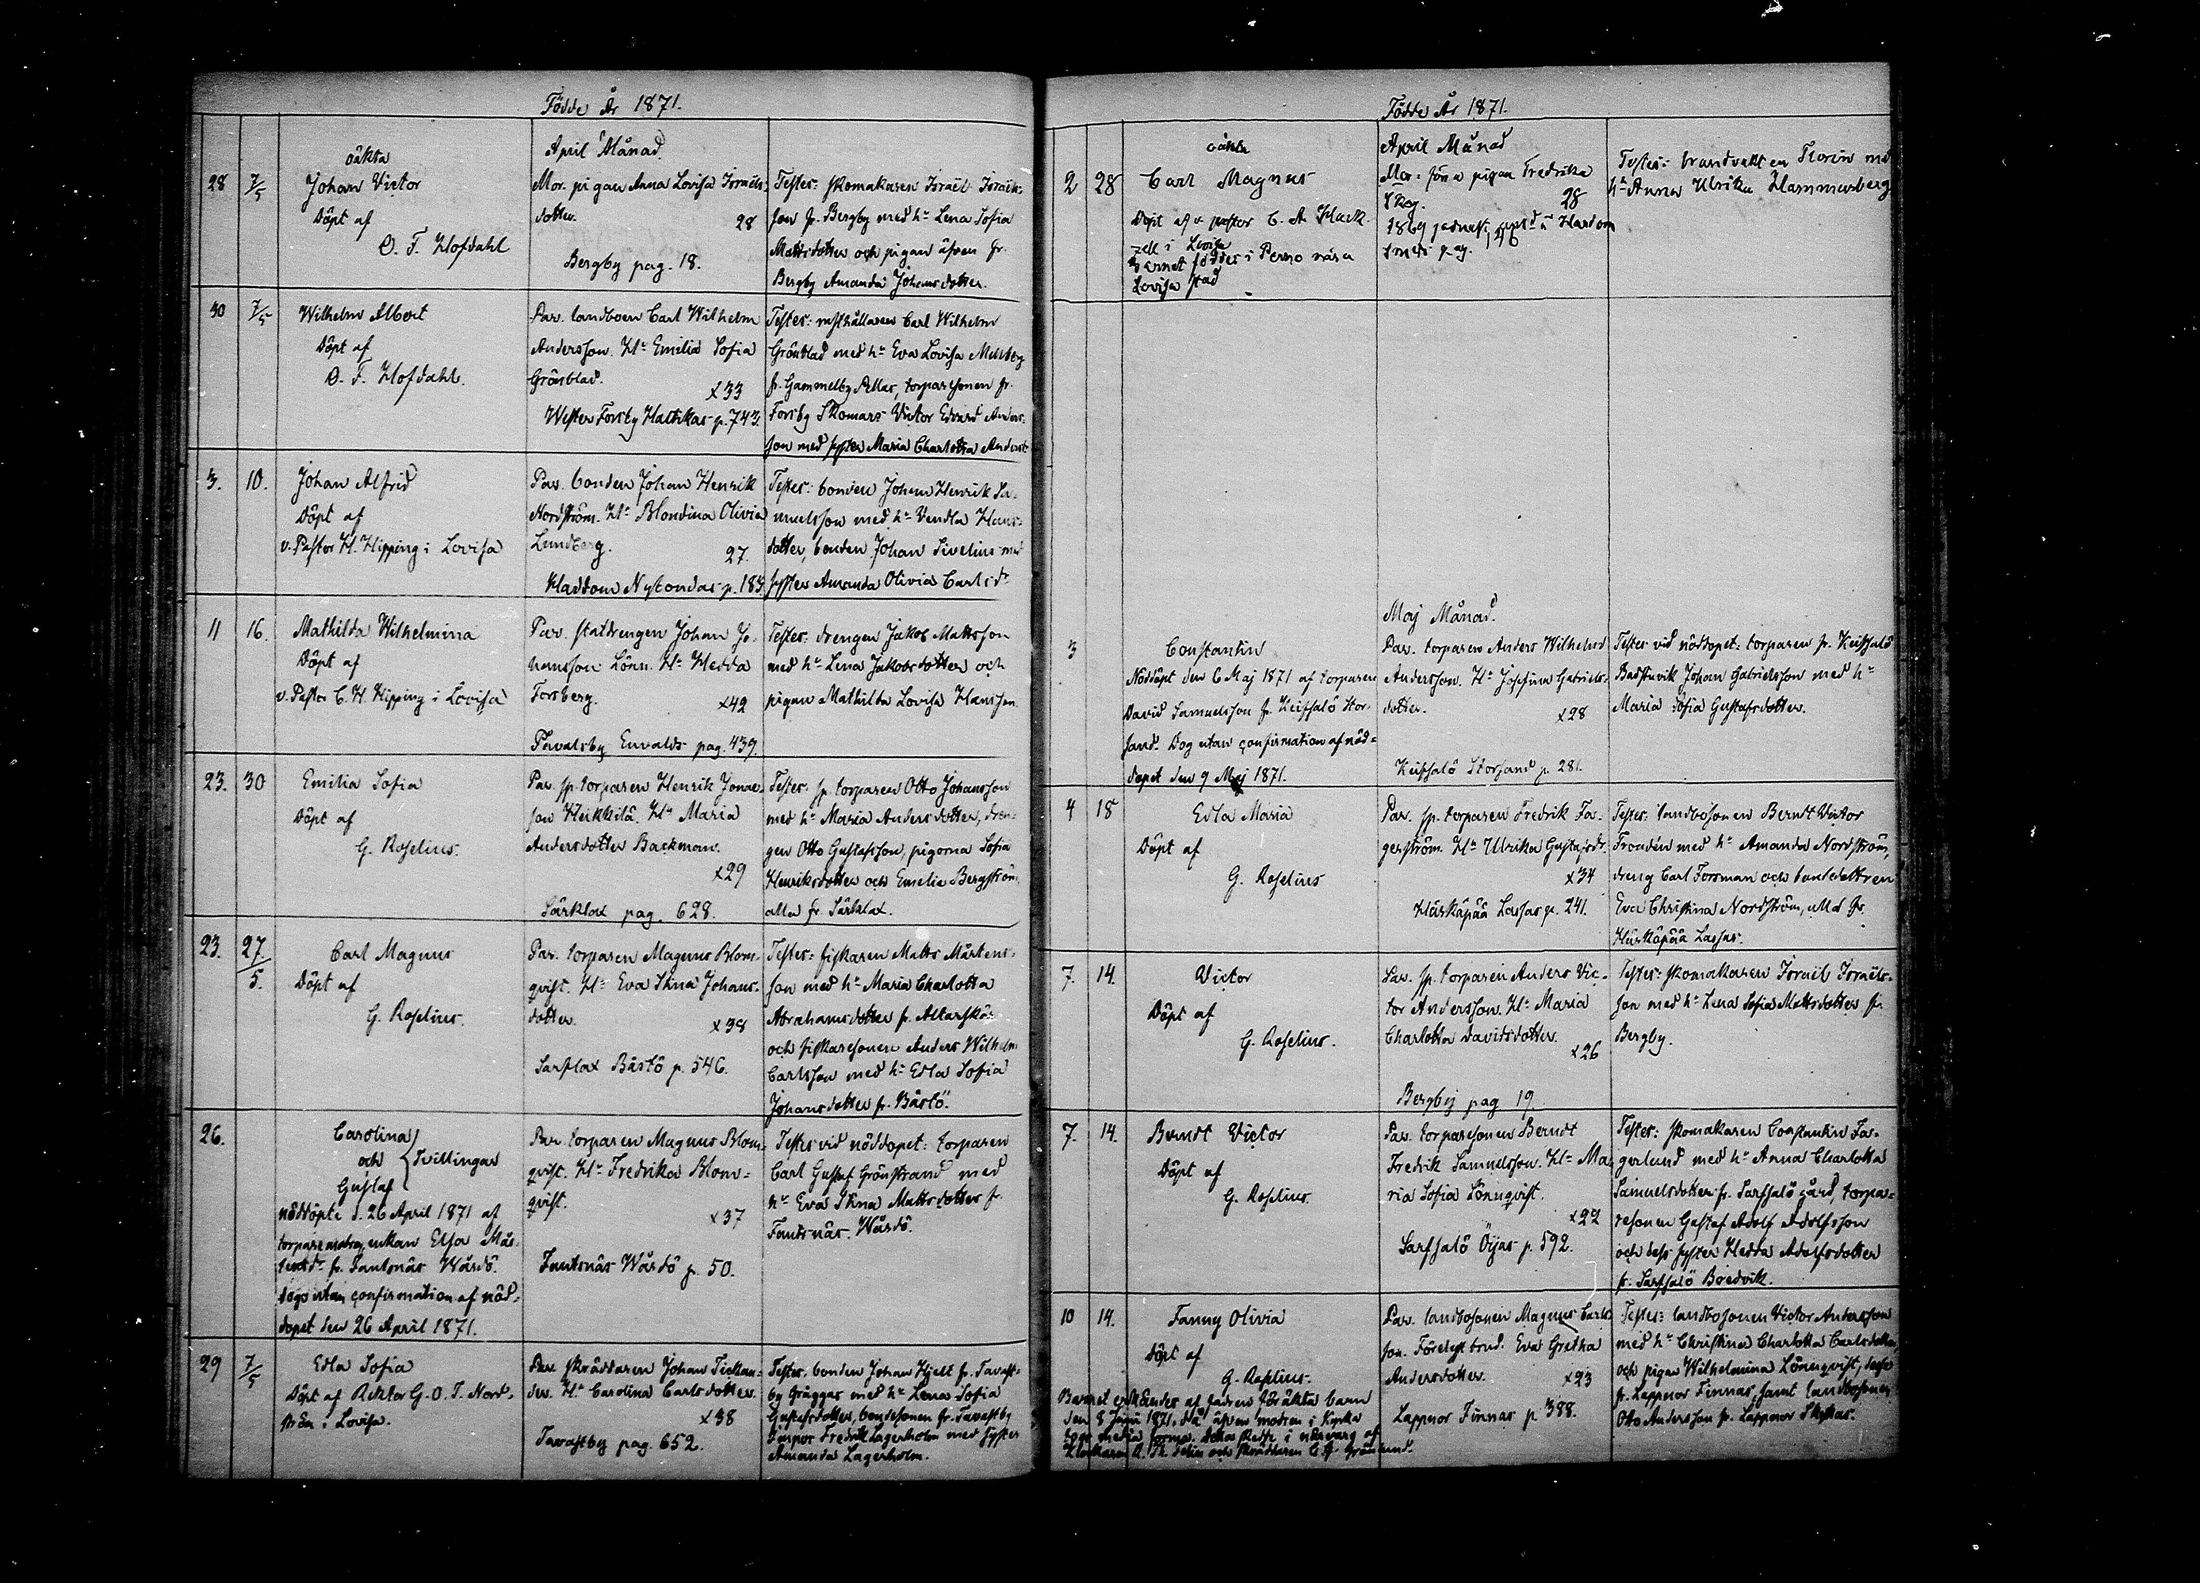 Födde År 1871.
April Månad.
28 7/5
oäkta
Johan Victor
Döpt af
O. F. Hofdahl
Mor. pigan Anna Lovisa Israëls-
dotter. 28
Bergby pag. 18.
Tester: skomakaren Israël Israëls-
son fr. Bergby med hu Lena Sofia
Mattsdotter och pigan äfven fr.
Bergby Amanda Johansdotter.
30 7/5
Wilhelm Albert
Döpt af
O. F. Hofdahl.
Par. landboen Carl Wilhelm
Andersson. Hu Emilia Sofia
Grönblad. x33
Wester Forsby Hattikas p. 743.
Tester: rusthållaren Carl Wilhelm
Grönblad med hu Eva Lovisa
fr. Gammelby Pellas, torparesonen fr.
Forsby Skomars Victor Edvard Anders-
son med syster Maria Charlotta
3. 10.
Johan Alfrid
Döpt af
v. Pastor H. Hipping i Lovisa
Par. bonden Johan Henrik
Nordström. Hu Blondina Olivia
Lundberg. 27.
Haddom Nystondas p. 183.
Tester: bonden Johan Henrik Sa-
muelsson med hu Vendla Hans-
dotter, bonden Johan Sivelius med
syster Amanda Olivia Carlsdr
11 16.
Mathilda Wilhelmina
Döpt af
v. Pastor C. H. Hipping i Lovisa
Par. statdrengen Johan Jo-
hansson Lönn. Hu Hedda
Forsberg. x42
Tavalsby Envalds pag. 439.
Tester: drengen Jakob Mattsson
med hu Lena Jakobsdotter och
pigan Mathilda Lovisa Hansson.
23. 30
Emilia Sofia
Döpt af
G. Roselius.
Par. sp. torparen Henrik Jonas-
son Heikkilä. Hu Maria
Andersdotter Backman.
x29
Särklax pag. 628.
Tester: sp. torparen Otto Johansson
med hu Maria Andersdotter, dren-
gen Otto Gustafsson, pigorna Sofia
Henriksdotter och Emelie Bergström,
alla fr. Särklax.
23. 27/5.
Carl Magnus
Döpt af
G. Roselius.
Par. torparen Magnus Blom-
qvist. Hu Eva Stina Johans-
dotter. x38
Sarflax Båstö p. 546.
Tester: fiskaren Matts Mårtens-
son med hu Maria Charlotta
Abrahamsdotter fr. Altarskär
och fiskaresonen Anders Wilhelm
Carlsson med hu Edla Sofia
Johansdotter fr. Båstö.
26.
Carolina
och } Tvillingar
Gustaf
nöddöpte d. 26 April 1871 af
enkan Elsa Mår-
tensdr fr. Tantsnäs Wårdö.
Dogo utan confirmation af nöd-
dopet den 26 April 1871.
Par. torparen Magnus Blom-
qvist. Hu Fredrika Blom-
qvist.
x37
Tantsnäs Wårdö p. 50.
Tester vid nöddopet: torparen
Carl Gustaf Grönstrand med
hu Eva Stina Mattsdotter fr.
Tantsnäs. Wårdö.
29 7/5
Edla Sofia
Döpt af Rektor G. O. T. Nord-
i Lovisa.
Par. skräddaren Johan Ticklan-
der. Hu Carolina Carlsdotter.
x38
Tavastby pag. 652.
Tester: bonden Johan Hjelt fr. Tavast-
by Gräggas med hu Lena Sofia
Gustafsdotter, bondesonen fr. Tavastby
Fredrik Lagerholm med syster
Amanda Lagerholm.
Födde År 1871.
April Månad
2 28
oäkta
Carl Magnus
Döpt af v. pastor C. A.
i Lovisa
Barnet föddes i Perno nära
Lovisa stad
Mor: pigan Fredrika
28
1869
pag.
Tester: brandvakten Florin med
hu Anna Ulrika Hammarberg
Maj Månad.
3
Constantin
Nöddöpt den 6 Maj 1871 af torparen
David Samuelsson fr. Keitsalö Stor-
sand. Dog utan confirmation af nöd-
dopet den 9 Maj 1871.
Par. torparen Anders Wilhelm
Andersson. Hu Josefina Gabriels-
dotter. x28
Keitsalö Storsand p. 281.
Tester vid nöddopet: torparen fr. Keitsalö
Badstuvik Johan Gabrielsson med hu
Maria Sofia Gustafsdotter.
4 18
Edla Maria
Döpt af
G. Roselius
Par. sp. torparen Fredrik Fa-
gerström. Hu Ulrika Gustafsdr.
x34
Härkäpää Lassas p. 241.
Tester: landbosonen Berndt Victor
Frondén med hu Amanda Nordström,
dreng Carl Forsman och bondedottren
Eva Christina Nordström, alla fr.
Härkäpää Lassas.
7. 14.
Victor
Döpt af
G. Roselius.
Par. sp. torparen Anders Vic-
tor Andersson. Hu Maria
Charlotta Davidsdotter.
x26
Bergby pag 19.
Tester: skomakaren Israël Israëls-
son med hu Lena Sofia Mattsdotter fr.
Bergby.
7. 14.
Berndt Victor
Döpt af
G. Roselius.
Par. torparesonen Berndt
Fredrik Samuelsson. Hu Ma-
ria Sofia Lönnqvist.
x22
Sarfsalö Öijas p. 592.
Tester: skomakaren Constantin Fa-
gerlund med hu Anna Charlotta
Samuelsdotter fr. Sarfsalö gård, torpa-
resonen Gustaf Adolf Adolfsson
och dess syster Hedda Adolfsdotter
fr. Sarfsalö Bredvik.
10 14.
Fanny Olivia
Döpt af
G. Roselius.
Barnet erkändes af fadren för äkta barn
den 8 Juni 1871, då äfven modren i Kyrka
togs media forma. Detta skedde i närvaro af
Klockaren och skräddaren
Par. landbosonen Magnus Carls-
son. Förelöst brud. Eva Gretha
Andersdotter. x23
Lappnor Finnas p. 388.
Tester: landbosonen Victor Andersson
med hu Christina Charlotta Carlsdotter,
och pigan Wilhelmina Lönnqvist, desse
fr. Lappnor Finnas, samt landbosonen
Otto Andersson fr. Lappnor Skyttas.